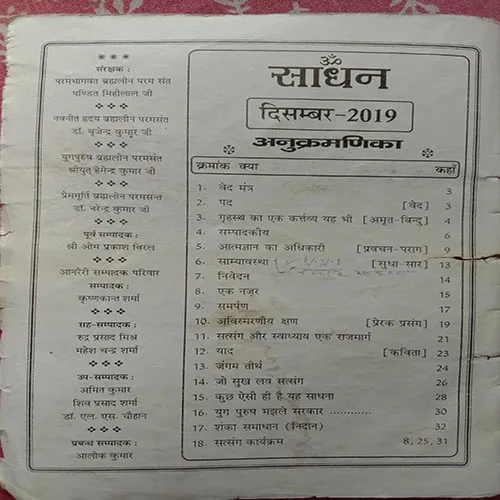 संरक्षक :
परमभागवत ब्रह्मलीन परम संत
पण्डित मिहीलाल जी
नवनीत हृदय ब्रह्मलीन परमसंत
डॉ. बृजेन्द्र कुमार जी
युगपुरुष ब्रह्मलीन परमसंत
श्रीयुत् हेमेन्द्र कुमार जी
प्रेममूर्ति ब्रह्मलीन परमसन्त
डॉ. नरेन्द्र कुमार जी
पूर्व सम्पादक :
श्री ओम प्रकाश विरल
आनरेरी सम्पादक परिवार
सम्पादक :
कृष्णकान्त शर्मा
सह-सम्पादक :
रुद्र प्रसाद मिश्र
महेश चन्द्र शर्मा
उप-सम्पादक :
अमित कुमार
शिव प्रसाद शर्मा
डॉ. एल. एस. चौहान
प्रबन्ध सम्पादक :
आलोक कुमार
ॐ
साधन
दिसम्बर-2019
अनुक्रमणिका
क्रमांक क्या कहाँ
1. वेद मंत्र 3
2. पद [वेद] 3
3. गृहस्थ का एक कर्त्तव्य यह भी [अमृत-विन्दु] 4
4. सम्पादकीय 6
5. आत्मज्ञान का अधिकारी [प्रवचन-पराग] 9
6. साम्यावस्था [सुधा-सार] 13
7. निवेदन 14
8. एक नज़र 15
9. समर्पण 17
10. अविस्मरणीय क्षण [प्रेरक प्रसंग] 19
11. सत्संग और स्वाध्याय एक राजमार्ग 21
12. याद [कविता] 23
13. जंगम तीर्थ 24
14. जो सुख लव सत्संग 26
15. कुछ ऐसी ही है यह साधना 28
16. युग पुरुष मझले सरकार ............ 30
17. शंका समाधान (निदान) 32
18. सत्संग कार्यक्रम 8, 25, 31